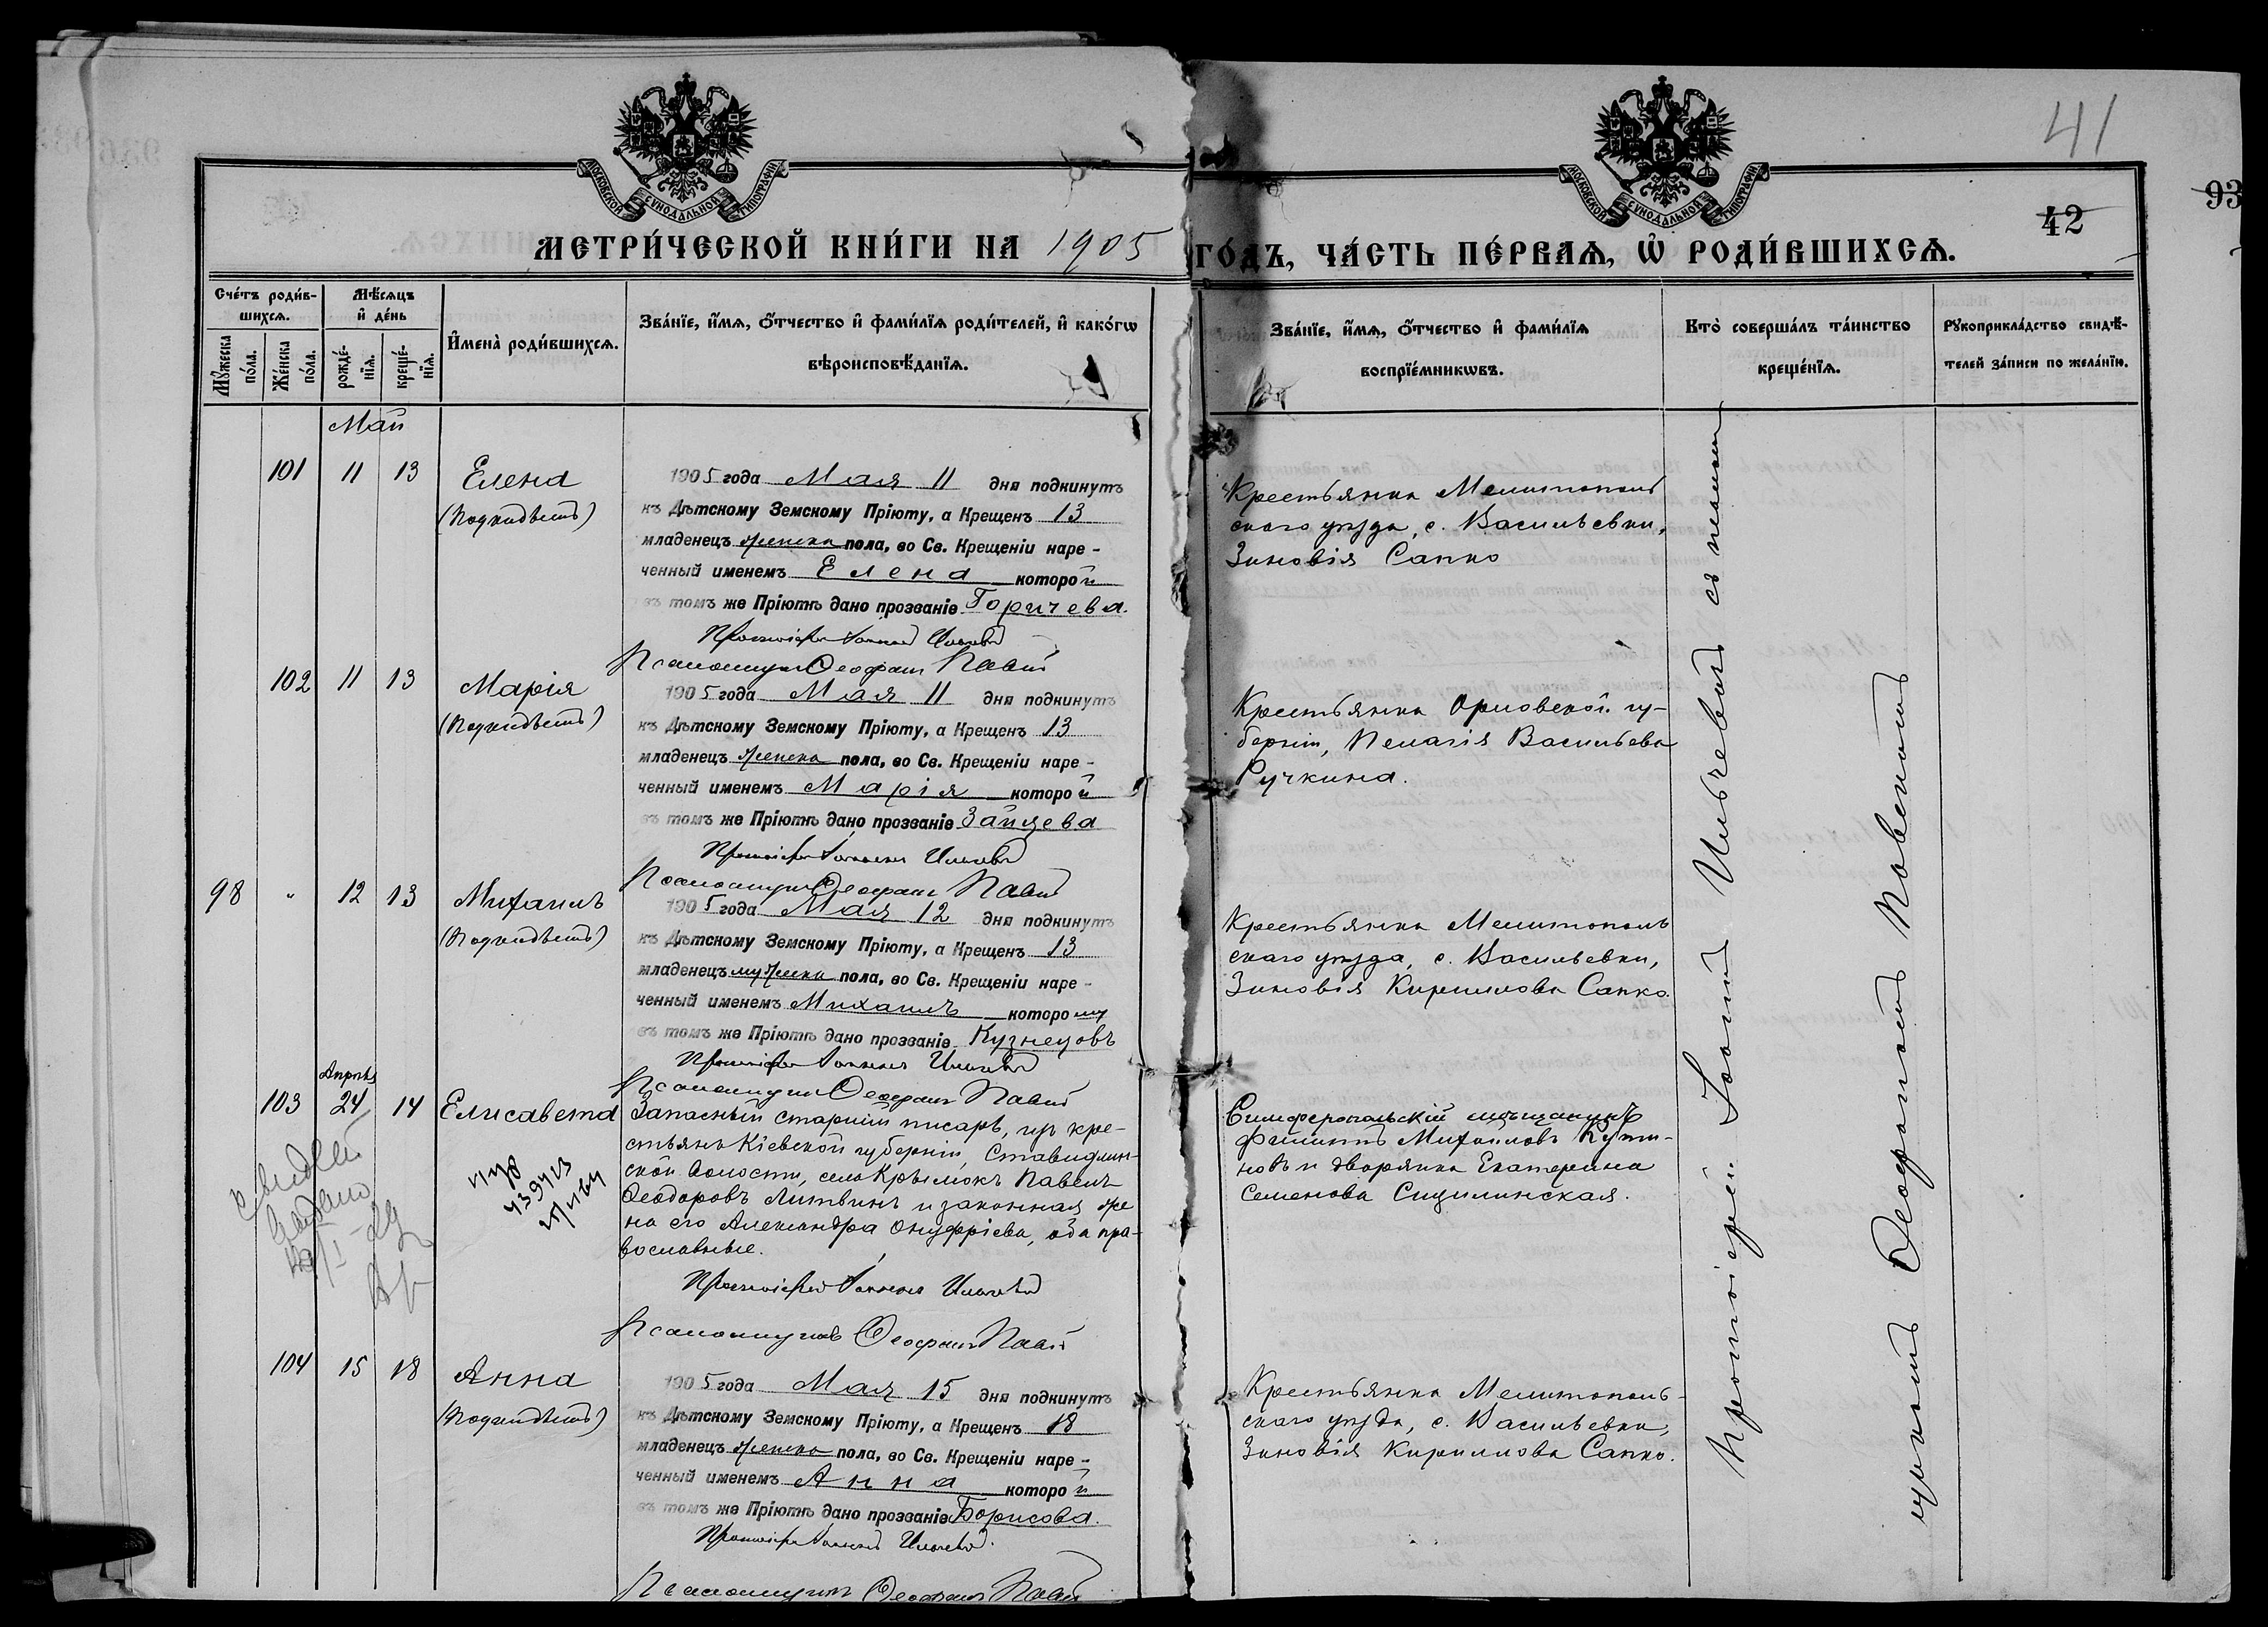 41
93
42
МОСКОВСКОЙ СѴНОДАЛЬНОЙ ТИПОГРАФІИ
МОСКОВСКОЙ СѴНОДАЛЬНОЙ ТИПОГРАФІИ
МЕТРИ́ЧЕСКОЙ КНИ́ГИ НА 1905 ГО́ДЪ, ЧА́СТЬ ПЕ́РВАѦ, Ѡ҆ РОДИ́ВШИХСѦ.
Сче́тъ роди́в-
шихсѧ.
Мꙋ́жеска по́ла.
Же́нска по́ла.
Мѣ́сѧцъ
и҆ де́нь
рожде́-
нїѧ.
креще́-
нїѧ.
И҆мена̀ роди́вшихсѧ.
Зва́нїе, и҆́мѧ, ѻ҆́тчество и҆ фами́лїѧ роди́телей, и҆ како́гѡ
вѣроисповѣ́данїѧ.
Зва́нїе, и҆́мѧ, ѻ҆́тчество и҆ фами́лїѧ
воспрїе́мникѡвъ.
Кто̀ соверша́лъ та́инство
креще́нїѧ.
Рꙋкоприкла́дство свидѣ́-
телей за́писи по жела́нїю.
Май
101 11 13 Елена
(Подкидышъ)
1905 года Мая 11 дня подкинутъ
къ Дѣтскому Земскому Пріюту, а Крещенъ 13
младенецъ женска пола, во Св. Крещеніи наре-
ченный именемъ Елена которой
въ томъ же Пріютѣ дано прозваніе Горичева.
Протоіерей Іоаннъ Ильчевъ
Псаломщикъ Ѳеофанъ
Крестьянка Мелитополь
скаго уѣзда, с. Васильевки,
Зиновія Сапко
102 11 13 Марія
(Подкидышъ)
1905 года Мая 11 дня подкинутъ
къ Дѣтскому Земскому Пріюту, а Крещенъ 13
младенецъ женска пола, во Св. Крещеніи наре-
ченный именемъ Марія которой
въ томъ же Пріютѣ дано прозваніе Зайцева
Протоіерей Іоаннъ Ильчевъ
Псаломщикъ Ѳеофанъ
Крестьянка Орловской гу-
берніи, Пелагія Васильева
Ручкина.
98 " 12 13 Михаилъ
(Подкидышъ)
1905 года Мая 12 дня подкинутъ
къ Дѣтскому Земскому Пріюту, а Крещенъ 13
младенецъ мужска пола, во Св. Крещеніи наре-
ченный именемъ Михаилъ которому
въ томъ же Пріютѣ дано прозваніе Кузнецовъ
Протоіерей Іоаннъ Ильчевъ
Псаломщикъ Ѳеофанъ
Крестьянка Мелитополь
скаго уѣзда, с. Васильевки,
Зиновія Кириллова Сапко.
Апрѣль
103 24 14 Елисавета
Запасный старшій писарь, изъ кре-
стьянъ Кіевской губерніи, Ставидлян-
ской волости, села Крымокъ Павелъ
Ѳеодоровъ Литвинъ и законная же
на его Александра Онуфріева, оба пра-
вославные.
Протоіерей Іоаннъ Ильчевъ
Псаломщикъ Ѳеофанъ
Симферопольскій мѣщанинъ
Филиппъ Михаиловъ
и дворянка Екатерина
Семенова Сицилинская.
104 15 18 Анна
(Подкидышъ)
1905 года Мая 15 дня подкинутъ
къ Дѣтскому Земскому Пріюту, а Крещенъ 18
младенецъ женска пола, во Св. Крещеніи наре-
ченный именемъ Анна которой
въ томъ же Пріютѣ дано прозваніе Борисова.
Протоіерей Іоаннъ Ильчевъ
Псаломщикъ Ѳеофанъ
Крестьянка Мелитополь-
скаго уѣзда, с. Васильевки,
Зиновія Кириллова Сапко.
Протоіерей Іоаннъ Ильчевъ съ псалом
щикомъ Ѳеофаномъ